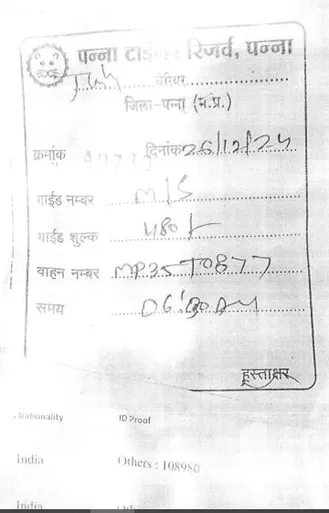 पन्ना टाइगर रिजर्व, पन्ना
बेरियर
जिला-पन्ना (म.प्र.)
क्रमांक दिनांक 26/12/24
गाईड नम्बर M/S
गाईड शुल्क 480/-
वाहन नम्बर MP35T0877
समय 06:30 AM
हस्ताक्षर
Nationality ID Proof
India Others : 108980
India